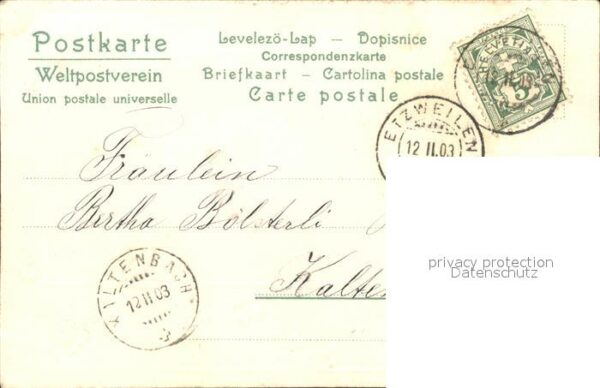 Postkarte
Weltpostverein
Union postale universelle
Levelező-Lap – Dopisnice
Correspondenzkarte
Briefkaart – Cartolina postale
Carte postale
HELVETIA
5
12 II 03
ETZWEILEN
12 II.03
Fräulein
Bertha Bölsterli
Kalten
KILTENBACH
12 II 03
privacy protection
Datenschutz